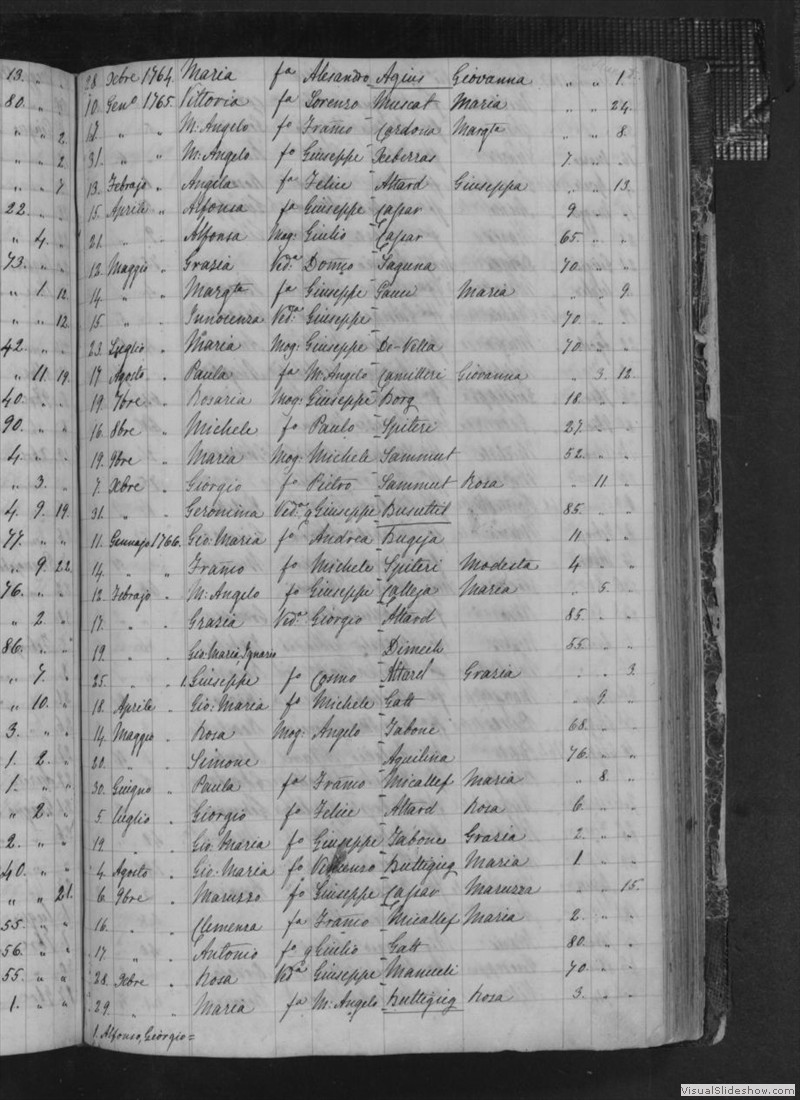 13. " " 28 Xbre 1764 Maria fa Alesandro Agius Giovanna " " 1
80. " 10. Geno 1765. Vittoria fa Lorenzo Muscat Maria " " 24.
" " 2 12. " " M. Angelo fo Franco Cardona Margta " " 8.
" " 2 31. " " M. Angelo fo Giuseppe Xeberras 7. " "
" " 7 13. Febrajo " Angela fa Felice Attard Giuseppa " " 13.
22. " " 15. Aprile " Alfonsa fa Giuseppe Caspar 9. " "
" 4. " 21. " " Alfonsa Mog: Giulio Caspar 65. " "
73. " " 12. Maggio " Grazia Veda Domco Laguna 70. " "
" 1. 12. 14. " " Margta fa Giuseppe Pauei Maria " " 9.
" " 12. 15. " " Innocenza Veda Giuseppe 70. " "
42. " " 23. Luglio " Maria Mog: Giuseppe De-Vella 70. " "
" 11. 19. 17. Agosto " Paula fa M. Angelo Camilleri Giovanna " 3. 12.
40. " " 19. 7bre " Rosaria Mog: Giuseppe Borg 18. " "
90. " " 16. 8bre " Michele fo Paulo Spiteri 27. " "
4. " " 19. 9bre " Maria Mog: Michele Sammut 52. " "
" 3. " 7. Xbre " Giorgio fo Pietro Sammut Rosa " 11. "
4. 9. 19. 31. " " Geronima Veda q Giuseppe Busuttil 85. " "
77. " " 11. Gennajo 1766. Gio: Maria fo Andrea Bugeja 11. " "
" 9. 22. 14. " " Franco fo Michele Spiteri Modesta 4. " "
76. " " 12. Febrajo " M: Angelo fo Giuseppe Calleja Maria " 5. "
" 2. " 17. " " Grazia Veda Giorgio Attard 85. " "
86. " " 19. " " Gio Maria Ignazio Dimech 55. " "
" 7. " 25. " " 1. Giuseppe fo Cosmo Attard Grazia " " 3.
" 10. " 18. Aprile " Gio: Maria fo Michele Gatt " 9. "
3. " " 14. Maggio " Rosa Mog: Angelo Zabone 68. " "
1. 2. " 20. " " Simone Aquilina 76. " "
1. " " 30. Giugno " Paula fa Franco Micallef Maria " 8. "
" 2. " 5. Luglio " Giorgio fo Felice Attard Rosa 6. " "
2. " " 19. " " Gio: Maria fo Giuseppe Zabone Grazia 2. " "
40. " " 4. Agosto " Gio. Maria fo Vincenzo Buttigieg Maria 1. " "
" " 21. 6. 9bre " Maruzzo fo Giuseppe Caspar Maruzza " " 15.
55. " " 16. " " Clemenza fa Franco Micallef Maria 2. " "
56. " " 17. " " Antonio fo q Giulio Gatt 80. " "
55. " " 28. Xbre " Rosa Veda Giuseppe Manueli 70. " "
1. " " 29. " " Maria fa M: Angelo Buttigieg Rosa 3. " "
1. Alfonso, Giorgio =
VisualSlideshow.com